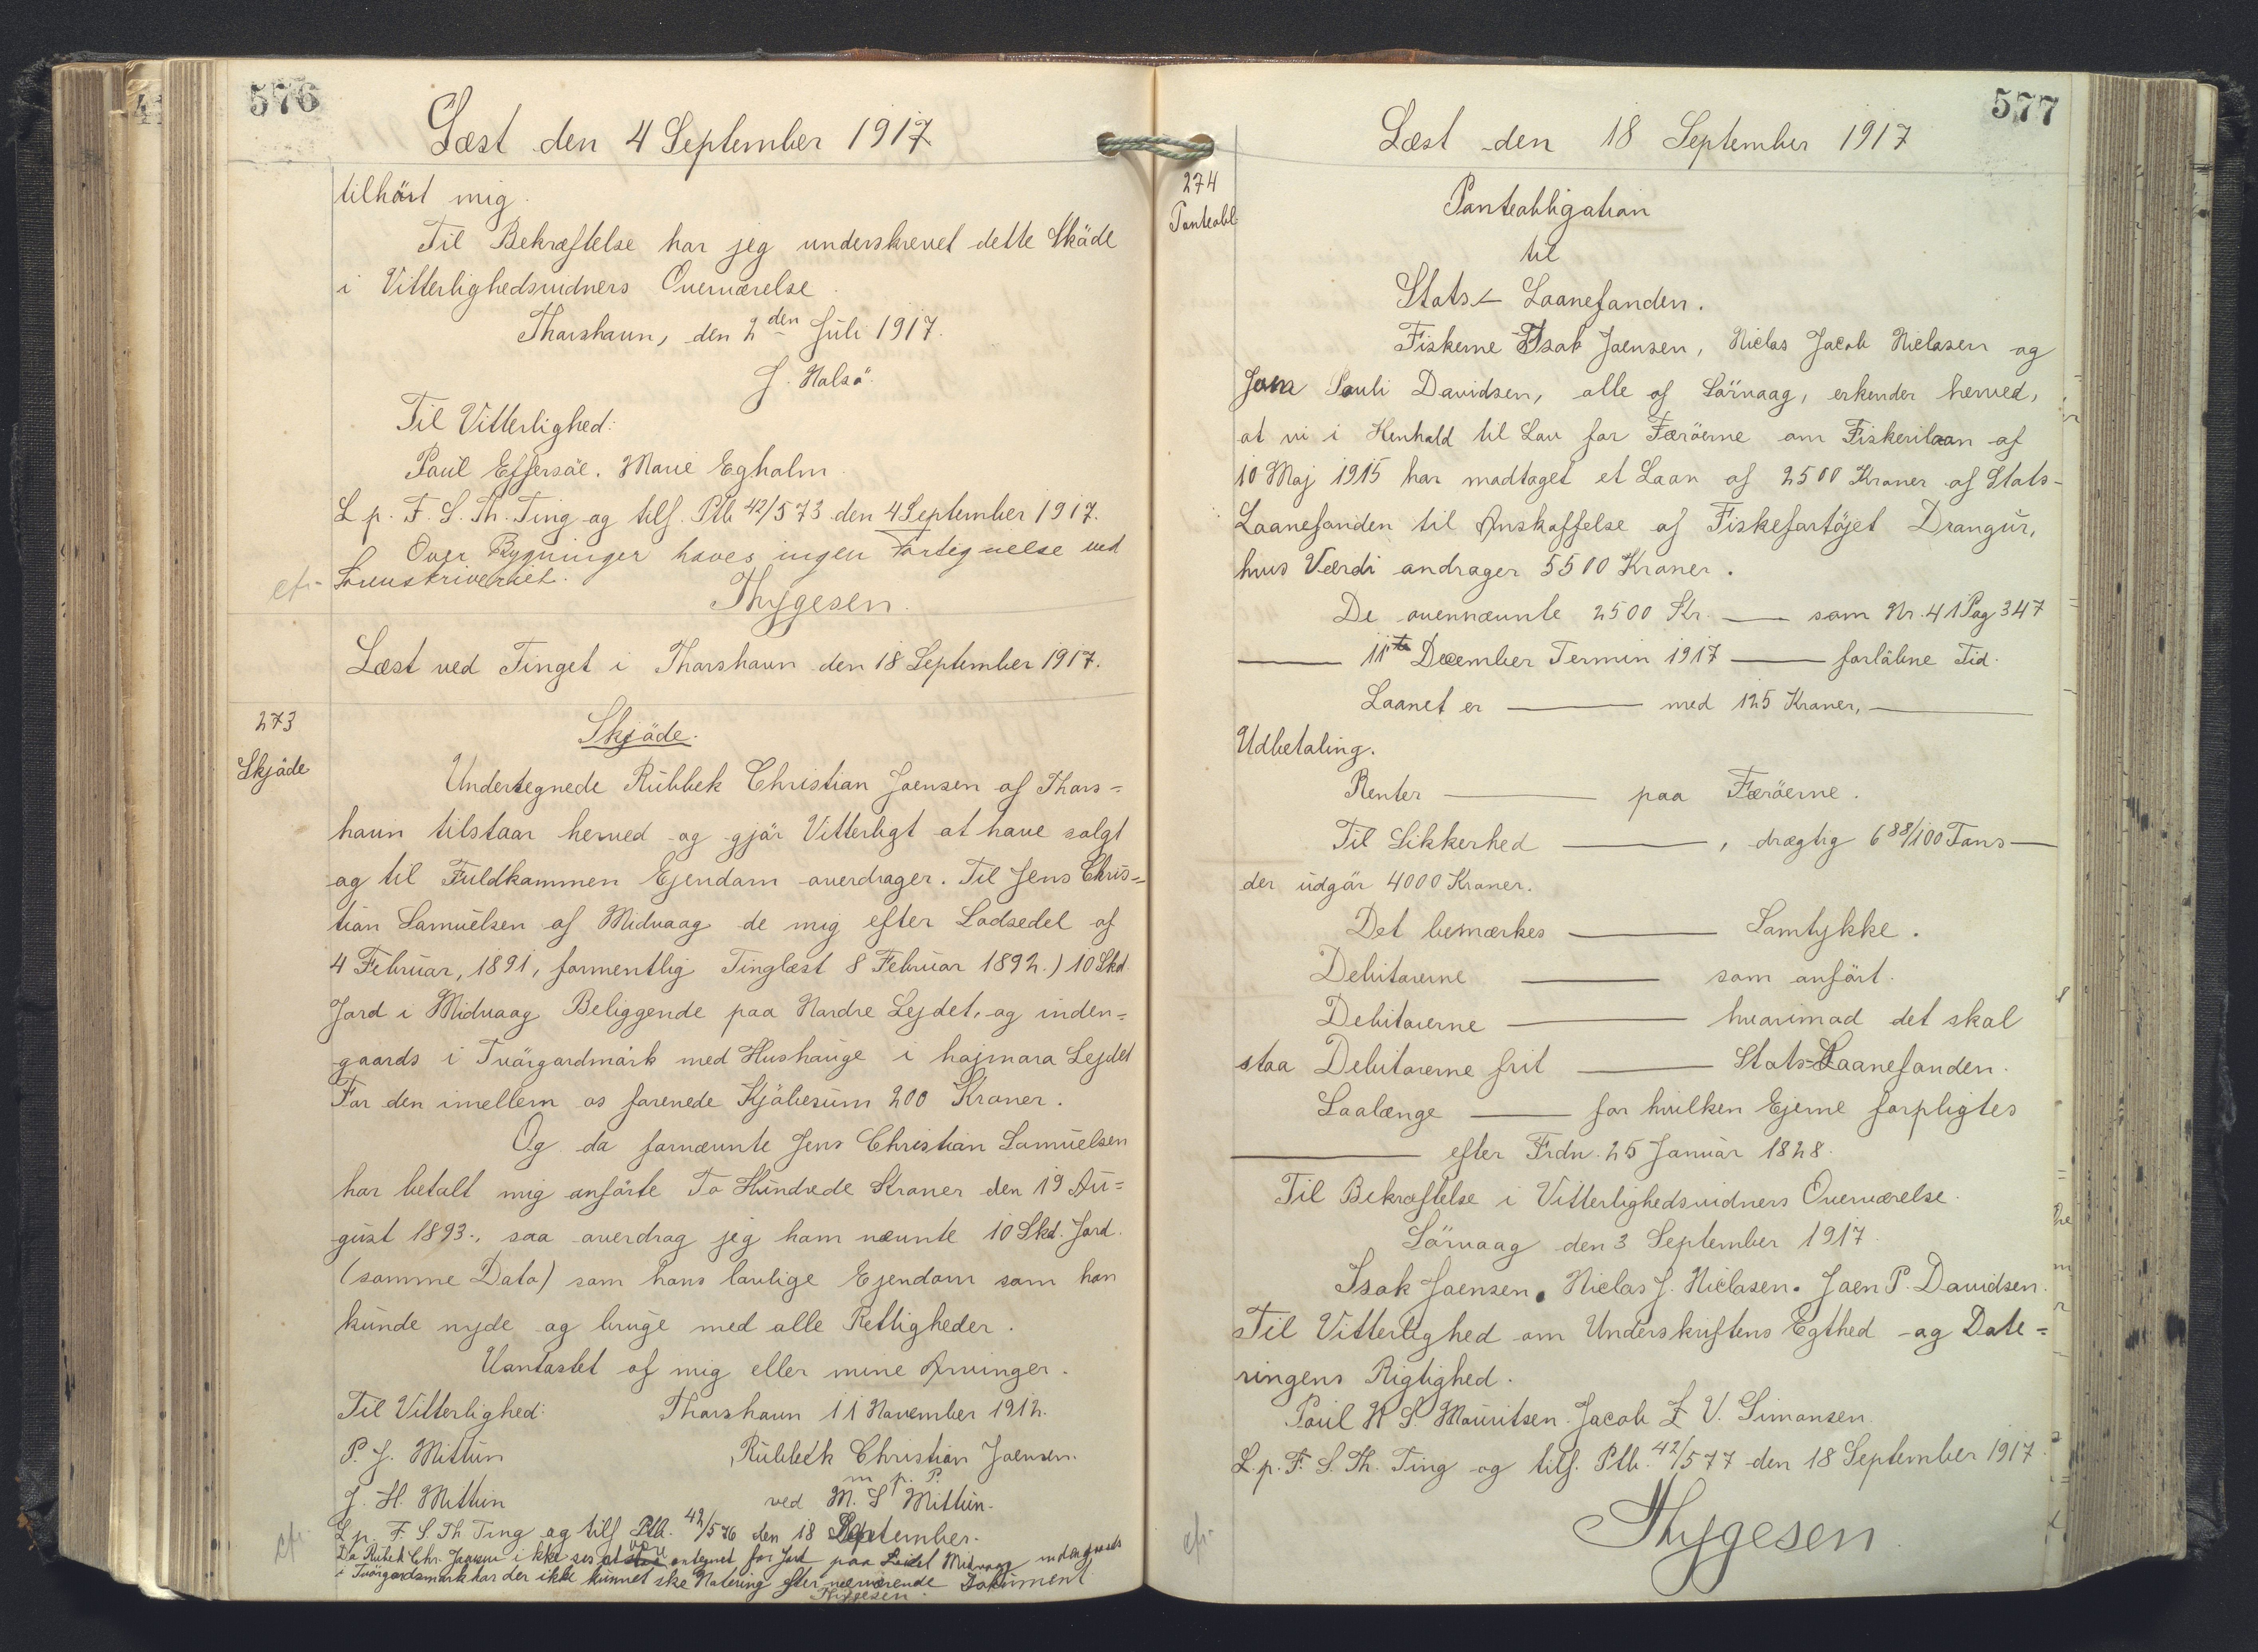 576
Læst den 4 September 1917
tilhört mig.
Til Bekræftelse har jeg underskrevet dette Skäde
i Vitterlighedsvidners Overværelse.
Thorshavn, den 2den Juli 1917.
J. Nolsö.
Til Vitterlighed:
Poul Effersöe. Marie Egholm.
L. p. F. S. Th. Ting og tilf. Ptb 42/573 den 4 September 1917.
Over Bygninger haves ingen Fortegnelse ved
cfr. Sorenskriveriet.
Thygesen.
Læst ved Tinget i Thorshavn den 18 September 1917.
273
Skjöde.
Skjöde
Undertegnede Rübbek Christian Joensen af Thors=
havn tilstaar herved og gjör Vitterligt at have solgt
og til Fuldkommen Ejendom overdrager. Til Jens Chris=
tian Samuelsen af Midvaag de mig efter Lodsedel af
4 Februar, 1891, formentlig Tinglæst 8 Februar 1892.) 10 Skd.
Jord i Midvaag Beliggende paa Nordre Lejdet, og inden=
gaards i Tvörgardmörk med Hushauge i hajmara Lejdet
For den imellem os forenede Kjöbesum 200 Kroner.
Og da fornævnte Jens Christian Samuelsen
har betalt mig anförte To Hundrede Kroner den 19 Au=
gust 1893., saa overdrog jeg ham nævnte 10 Skd. Jord.
(samme Dato) som hans lovlige Ejendom som han
kunde nyde og bruge med alle Rettigheder.
Uantastet af mig eller mine Arvinger.
Til Vitterlighed: Thorshavn 11 November 1912.
P. J. Mittun Rübbek Christian Joensen.
m. p. P.
J. H. Mittun ved M. S. Mittun.
L. p. F. S. Th. Ting og tilf. Ptb. 42/576 den 18 September.
cfr. Da Rubek Chr. Joensen ikke ses at være antegnet for Jord paa Leidet Midvaag indengaards
i Tvörgardsmørk har der ikke kunnet ske Notering efter nærværende Dokument
Thygesen.
577
Læst den 18 September 1917
274
Panteobl.
Panteobligation
til
Stats- Laanefonden.
Fiskerne Isak Joensen, Niclas Jacob Niclasen og
Joen Pauli Davidsen, alle af Sörvaag, erkender herved,
at vi i Henhold til Lov for Færöerne om Fiskerilaan af
10 Maj 1915 har modtaget et Laan af 2500 Kroner af Stats-
Laanefonden til Anskaffelse af Fiskefartöjet Drangur,
hvis Værdi andrager 5500 Kroner.
De ovennævnte 2500 Kr. — som Nr. 41 Pag 347
— 11te December Termin 1917 — forlöbne Tid.
Laanet er — med 125 Kroner, —
Udbetaling.
Renter — paa Færöerne.
Til Sikkerhed — , drægtig 6 88/100 Tons —
der udgör 4000 Kroner.
Det bemærkes — Samtykke.
Debitorerne — som anfört.
Debitorerne — hvorimod det skal
staa Debitorerne frit — Stats-Laanefonden.
Saalænge — for hvilken Ejerne forpligtes
— efter Frdn. 25 Januar 1828.
Til Bekræftelse i Vitterlighedsvidners Overværelse.
Sörvaag den 3 September 1917.
Isak Joensen. Niclas J. Niclasen. Joen P. Davidsen.
Til Vitterlighed om Underskriftens Egthed og Date=
ringens Rigtighed.
Poul H S. Mouritsen. Jacob Z V. Simonsen.
L. p. F. S. Th. Ting og tilf. Ptb. 42/577 den 18 September 1917.
cfr.
Thygesen